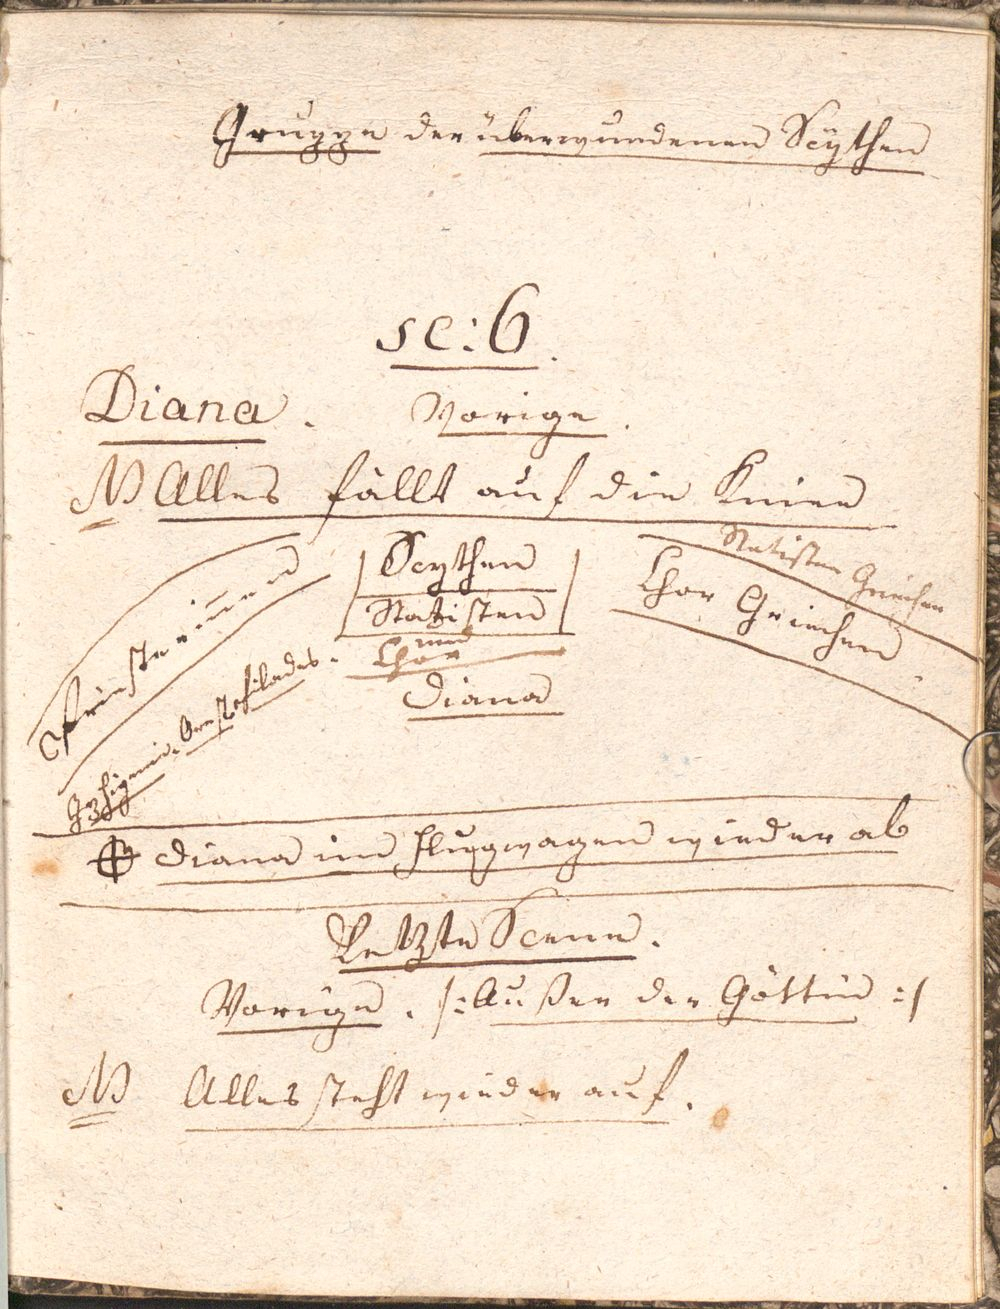 Gruppe der überwundenen Scÿthen
sc: 6.
Diana. Vorige.
NB Alles fällt auf die Kniee
Priesterinnen
Iphigenie. Orest. Pilades.
Scythen
Statisten
und
Chor
Diana
Statisten Griechen
Chor Griechen
Diana im Flugwagen wieder ab
Letzte Scene.
Vorige. /: Außer der Göttin :/
NB Alles steht wieder auf.